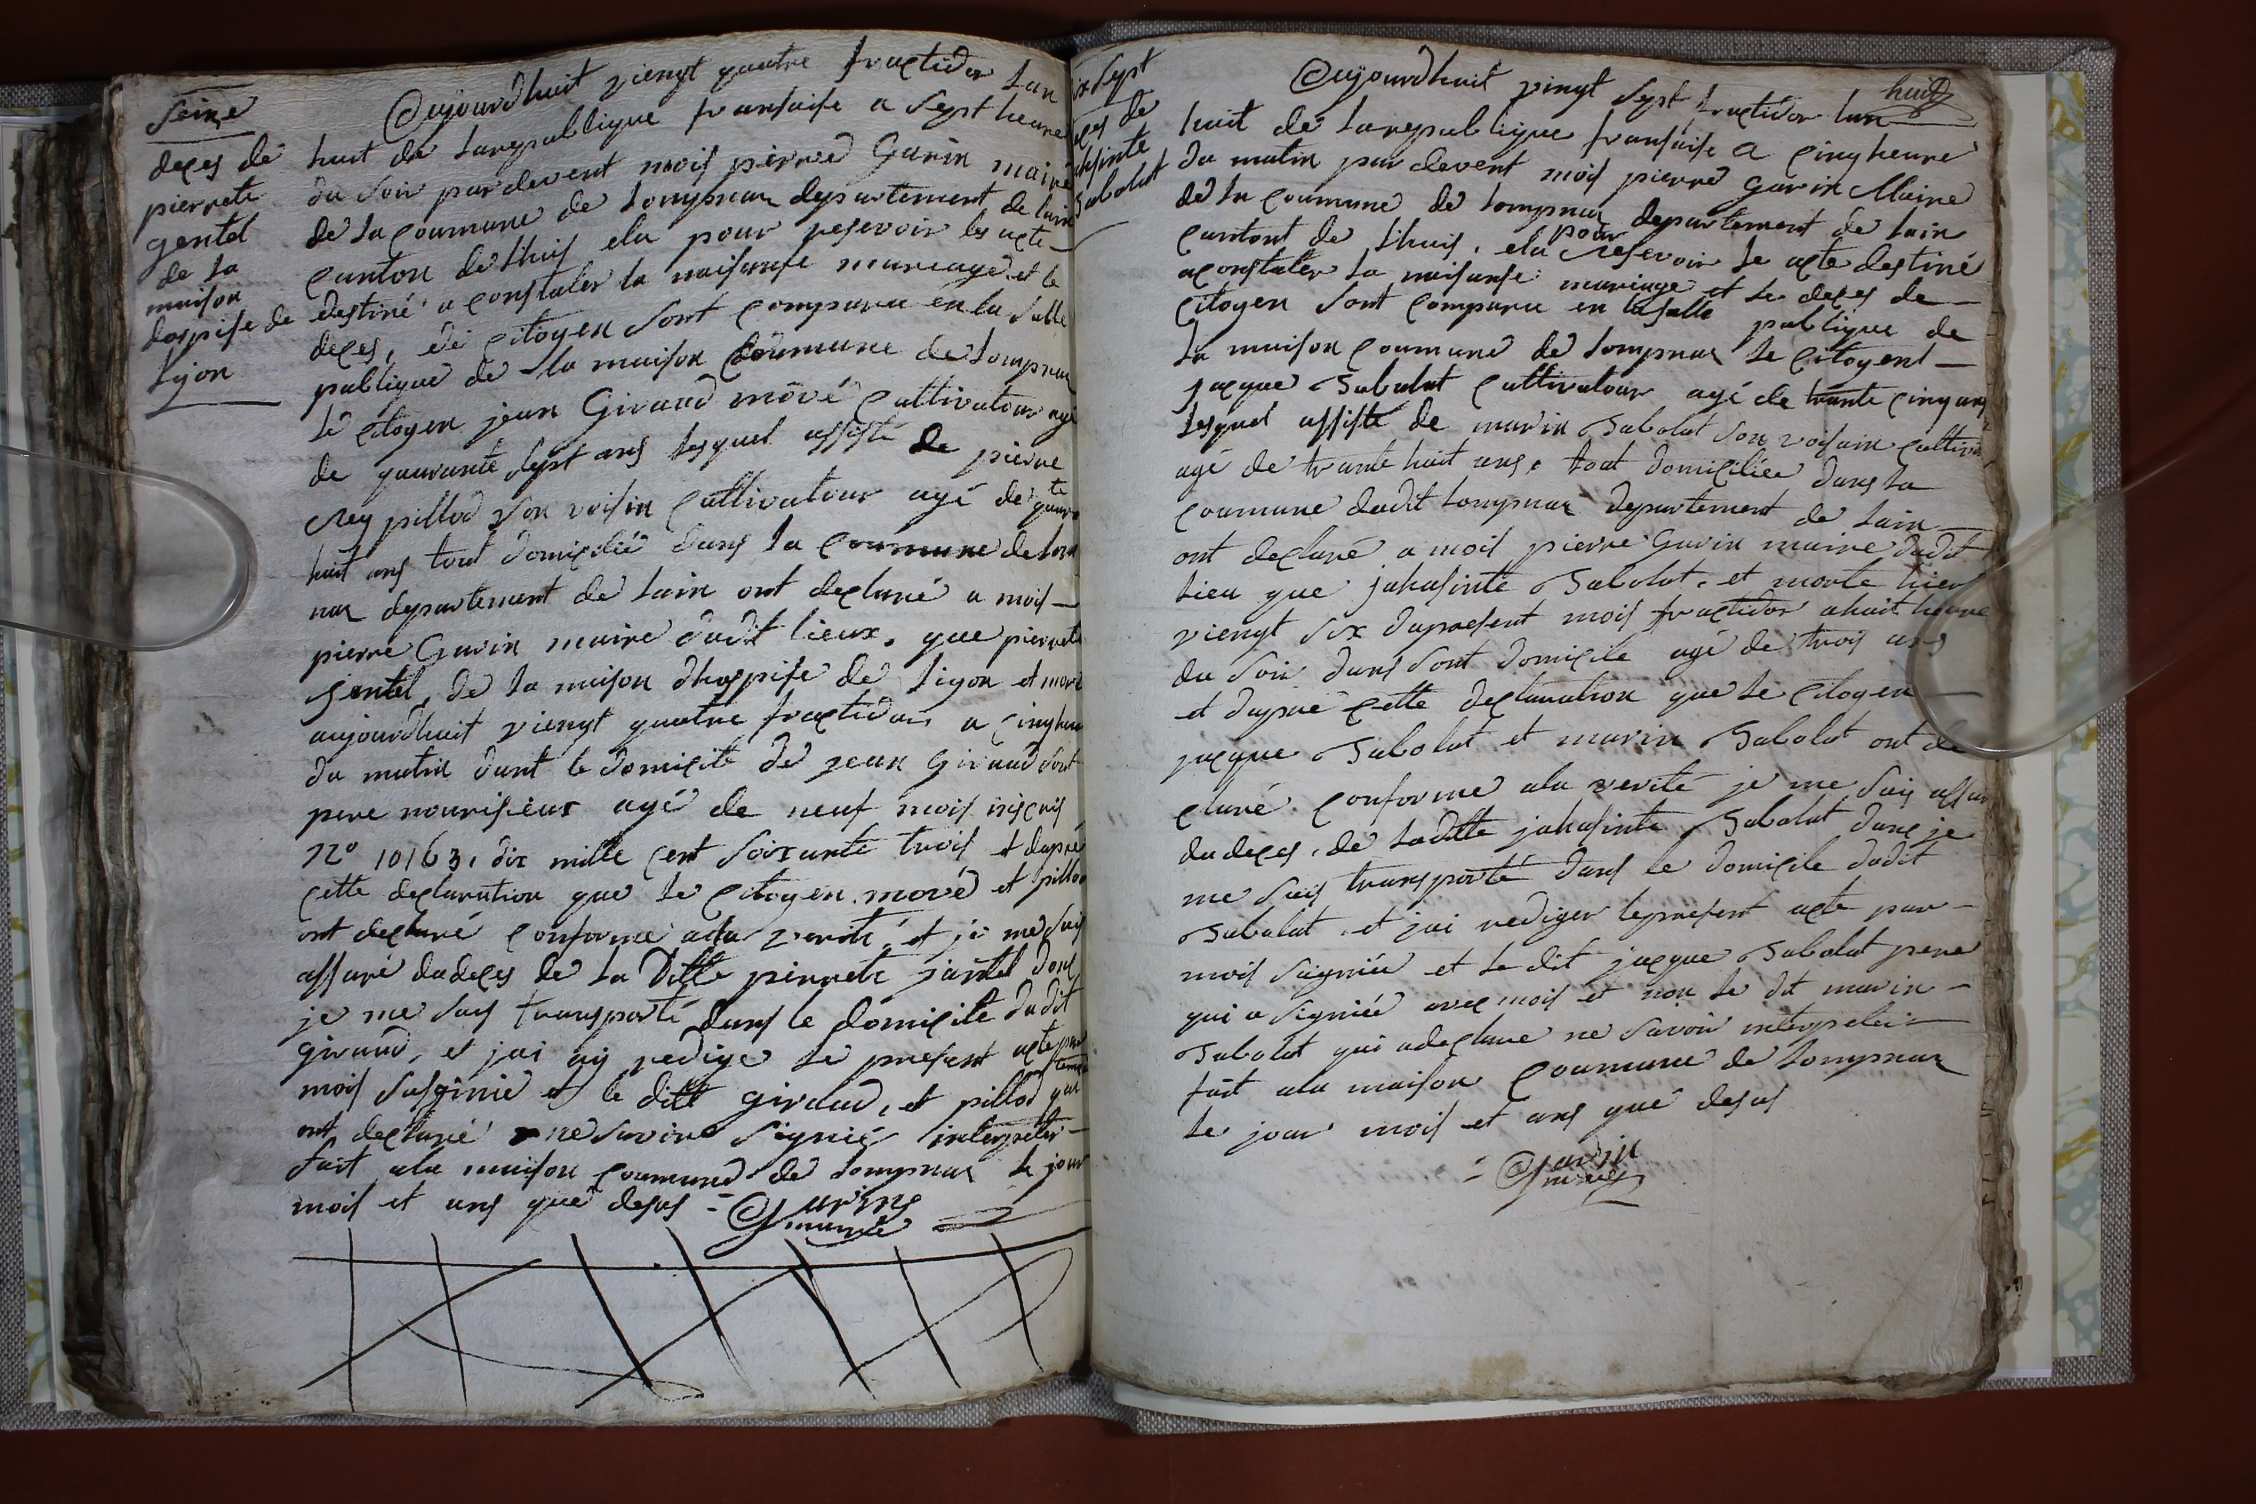 Seize
deces de
pierrete
gentel
de la
maison
dospise de
Lyon
Aujourdhuit viengt quatre fructidor lan
huit de larepublique fransaise a sept heure
du soir pardevent mois pierre Garin maire
de la coumune de Lompnar departement de lain
canton de Lhuis elu pour resevoir les acte
destiné a constaler la naisanse mareage et le
deces, de citoyen sont comparu en la salle
publique de la maison coumune de Lompnar
le citoyen jean Giraud mové cultivatour agé
de quarante sept ans lesquel assisté de pierre
Rey pillod son voisin cultivatour agé de quarante
huit ans tout domicilié dans la coumune de Lom
nar departement de lain ont declaré a mois
pierre Garin maire dudit lieux, que pierrete
gentel, de la maison dhospise de Liyon et mort
aujourdhuit viengt quatre fructidor a cinq heure
du matin dant le domicile de jean Giraud sont
pere nourisieur agé de neuf mois inscris
No 10163, dix mille cent soixante trois et dapré
cette declaration que le citoyen mové et pillod
ont declaré conforme ala verité et je me suis
assuré dudeces de la Ditte pierrete jantel donc
je me suis transporté dans le domicile dudit
giraud, et jai ay redige le present acte par
mois susginié et le ditt giraud, et pillod
ont declaré ne savoire signié interpeler
fait ala maison coumune de Lompnar le jour
mois et ans que desus = Garin
maire
huit
dix sept
deces de
jahasinte
Sabolat
Aujourdhuit vingt sept fructidor lan
huit de larepublique fransaise a cinq heure
du matin par devent mois pierre Garin Maire
de la coumune de Lompnar departement de lain
cantont de Lhuis, elu pour resevoir le acte destiné
aconstaler la naisanse mariage et le deces de
citoyen sont comparu en lasalle publique de
la maison coumune de Lompnar le citoyent
jacque Sabolat cultivatour agé de trante cinq ans
lesquel assisté de marin Sabolat son voisain cultiva
agé de trante huit ans, tout domiciliée dans la
coumune dudit Lompnar departement de lain
ont declaré a mois pierre Garin maire dudit
lieu que jahasinte Sabolat, et morte hier
viengt six dupresent mois fructidor ahuit heure
du soir dans sont domicile agé de trois ans
et daprié cette declaration que le citoyen
jacque Sabolat et marin Sabolat ont de
claré conforme ala verité je me suis assuré
dudeces, de ladite jahasinte Sabolat donc je
me suis transporté dans le domicile dudit
Sabolat, et jai rediger lepresent acte par
mois saigniéé et le dit jacque Sabolat pere
qui a signiée avec mois et non le dit marin
Sabolat qui adeclare ne savoir interpeler
fait ala maison coumune de Lompnar
le jour mois et ans qué desus
= Garin
maire